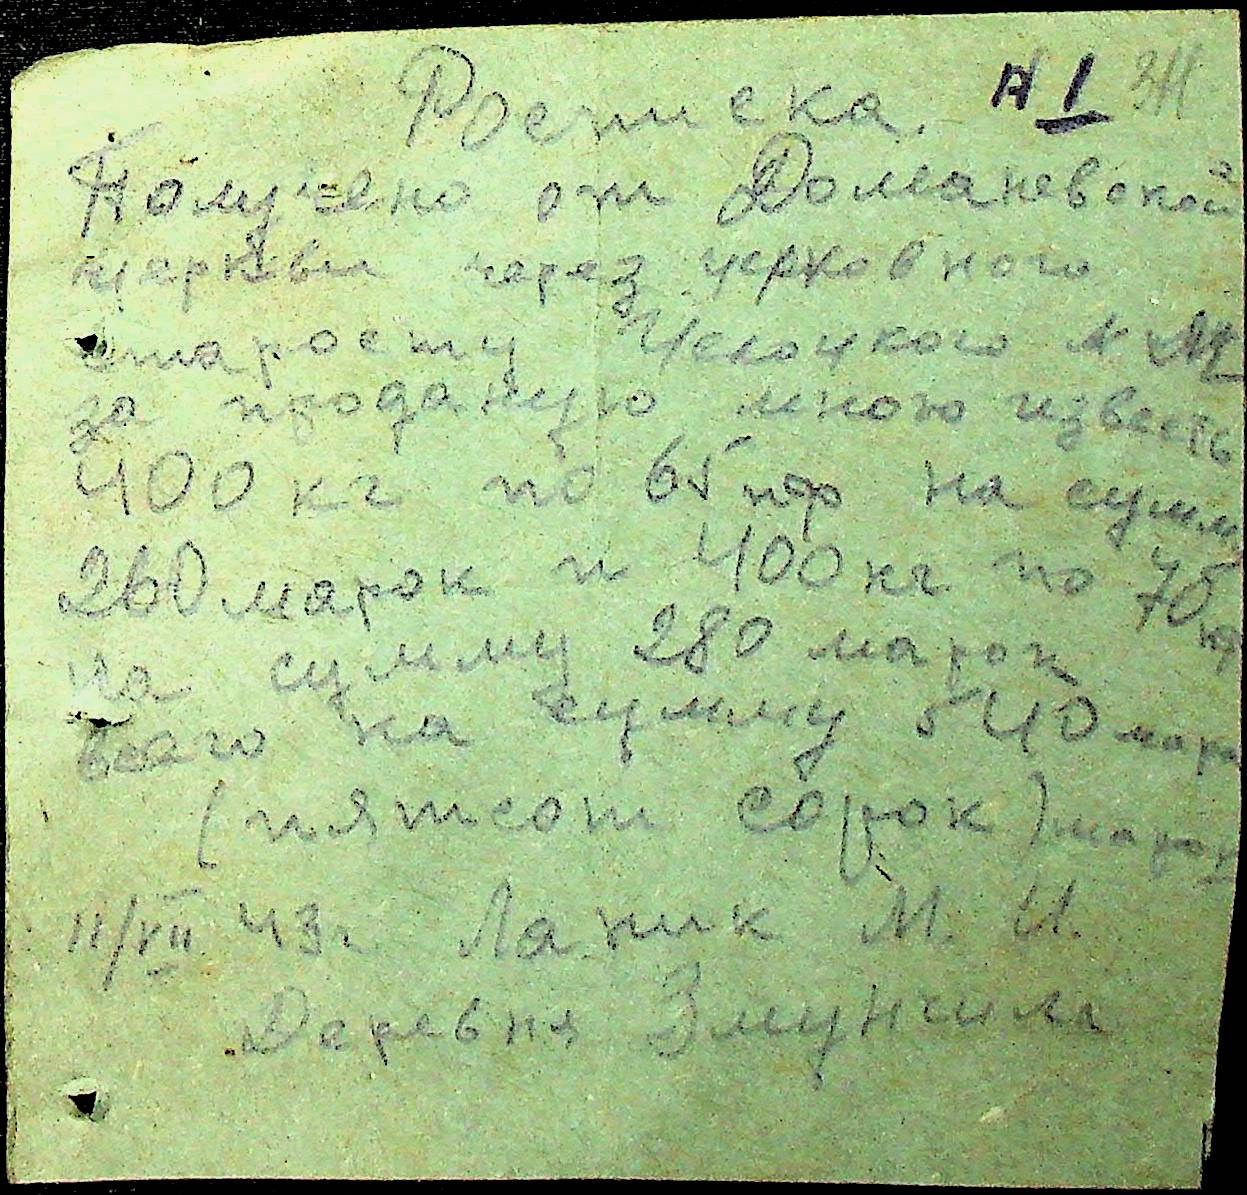 Росписка. А I 34
Получено от Доманевской
церкви через церковного
старосту
за проданую мною известь
400 кг по 65 пф на сумм
260 марок и 400 кг по 70 пф
на сумму 280 марок
Всаго на сумму 540 маро
(пятсот сорок) марок
11/VII 43 г Ланик М. И.
Деревня